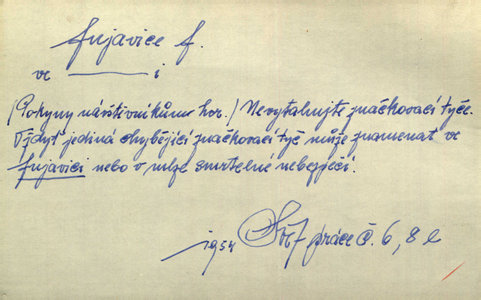 fujavice f.
ve ——— i
/Pokyny návštěvníkům hor./ Nevytahujte značkovací tyče.
Vždyť jediná chybějící značkovací tyč může znamenat ve
fujavici nebo v mlze smrtelné nebezpečí.
1954 Svět práce č. 6, 8